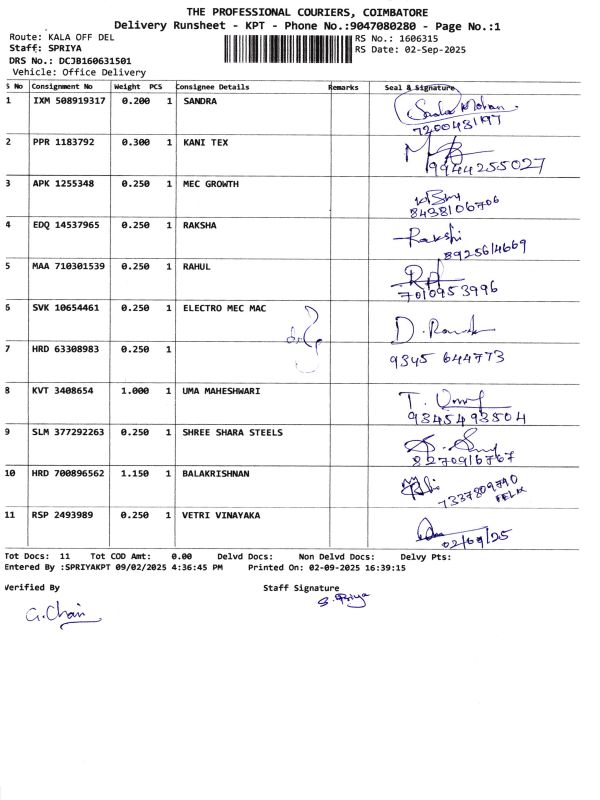 THE PROFESSIONAL COURIERS, COIMBATORE
Delivery Runsheet - KPT - Phone No.:9047080280 - Page No.:1
Route: KALA OFF DEL RS No.: 1606315
Staff: SPRIYA RS Date: 02-Sep-2025
DRS No.: DCJB160631501
Vehicle: Office Delivery
S No Consignment No Weight PCS Consignee Details Remarks Seal & Signature
1 IXM 508919317 0.200 1 SANDRA Sandra Mohan
7200431197
2 PPR 1183792 0.300 1 KANI TEX
9944255027
3 APK 1255348 0.250 1 MEC GROWTH
8438106706
4 EDQ 14537965 0.250 1 RAKSHA Rakshi
8925614669
5 MAA 710301539 0.250 1 RAHUL
7010953996
6 SVK 10654461 0.250 1 ELECTRO MEC MAC
7 HRD 63308983 0.250 1 9345 644773
8 KVT 3408654 1.000 1 UMA MAHESHWARI
9345493504
9 SLM 377292263 0.250 1 SHREE SHARA STEELS
8270916767
10 HRD 700896562 1.150 1 BALAKRISHNAN
7337809790
FELIX
11 RSP 2493989 0.250 1 VETRI VINAYAKA
02/09/25
Tot Docs: 11 Tot COD Amt: 0.00 Delvd Docs: Non Delvd Docs: Delvy Pts:
Entered By :SPRIYAKPT 09/02/2025 4:36:45 PM Printed On: 02-09-2025 16:39:15
Verified By Staff Signature
S. Priya